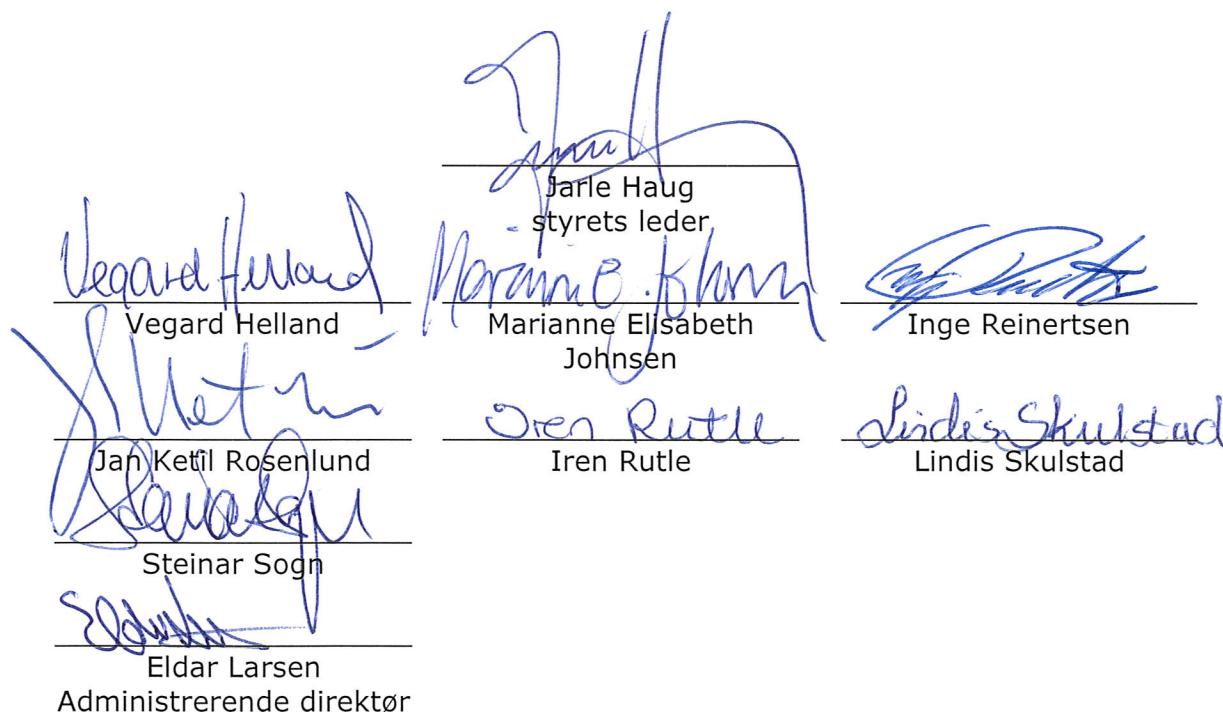 Jarle Haug
styrets leder
Vegard Helland
Vegard Helland
Marianne Elisabeth
Johnsen
Inge Reinertsen
Iren Rutle
Lindis Skulstad
Jan Ketil Rosenlund
Iren Rutle
Lindis Skulstad
Steinar Sogn
Eldar Larsen
Administrerende direktør